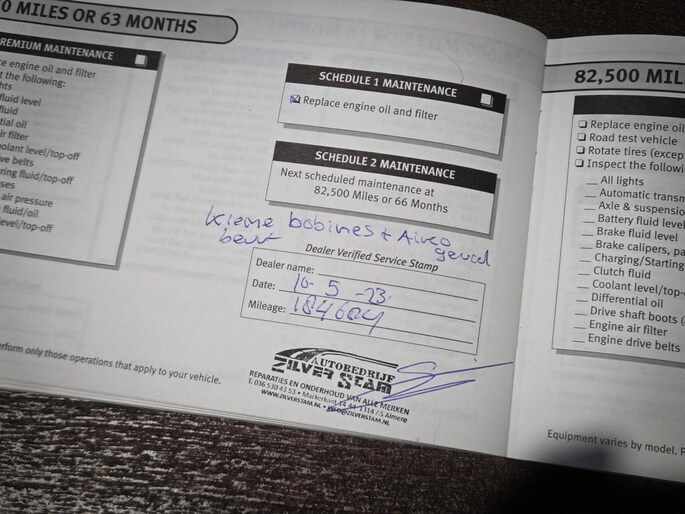 0 MILES OR 63 MONTHS
REMIUM MAINTENANCE
e engine oil and filter
t the following:
hts
fluid level
fluid
tial oil
ir filter
oolant level/top-off
ve belts
ring fluid/top-off
ses
air pressure
fluid/oil
level/top-off
erform only those operations that apply to your vehicle.
SCHEDULE 1 MAINTENANCE
Replace engine oil and filter
SCHEDULE 2 MAINTENANCE
Next scheduled maintenance at
82,500 Miles or 66 Months
bobines + Airco
beurt
Dealer Verified Service Stamp
Dealer name:
Date: 10-5-23
Mileage: 184604
AUTOBEDRIJF
ZILVER STAM
REPARATIES EN ONDERHOUD VAN ALLE MERKEN
T. 036 530 43 53 • Markerkant Almere
WWW.ZILVERSTAM.NL • INFO@ZILVERSTAM.NL
82,500 MIL
Replace engine oil
Road test vehicle
Rotate tires (excep
Inspect the followi
All lights
Automatic transm
Axle & suspensio
Battery fluid level
Brake fluid level
Brake calipers, pa
Charging/Starting
Clutch fluid
Coolant level/top-
Differential oil
Drive shaft boots (
Engine air filter
Engine drive belts
Equipment varies by model. P